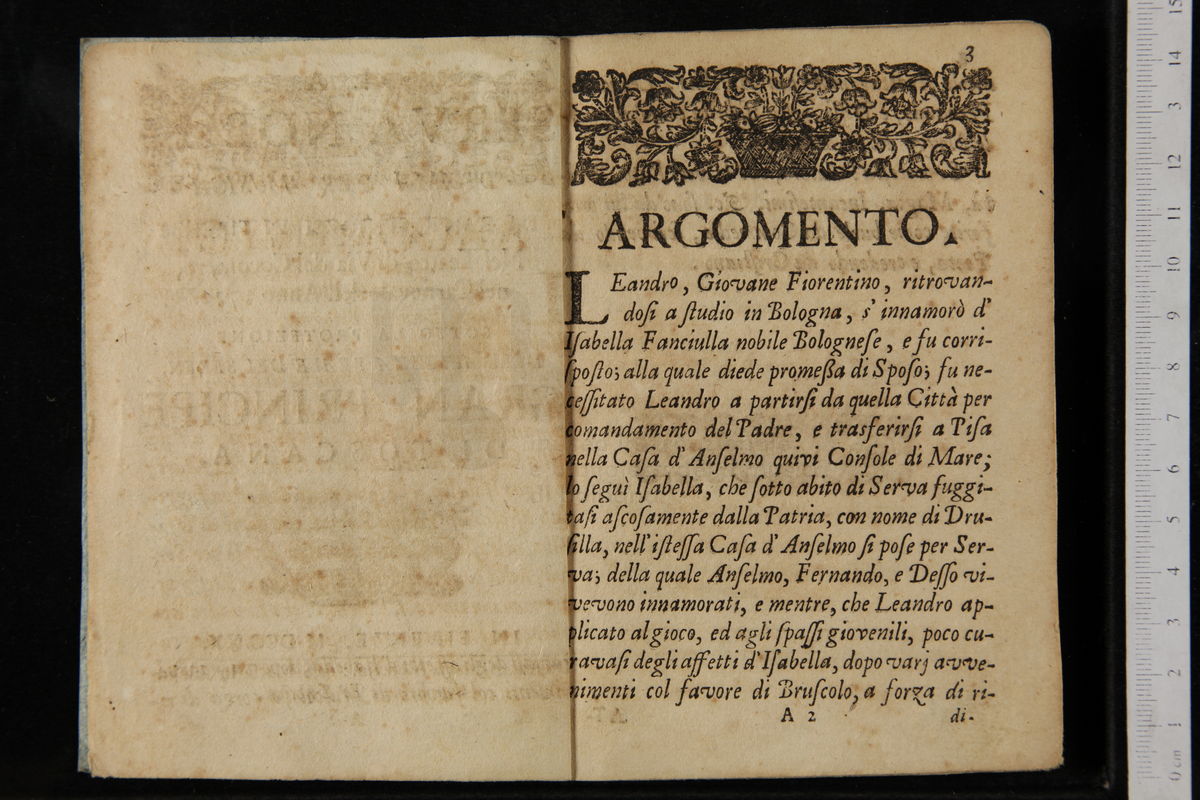 3
ARGOMENTO.
LEandro, Giovane Fiorentino, ritrovan-
doſi a ſtudio in Bologna, s' innamorò d'
Iſabella Fanciulla nobile Bologneſe, e fu corri-
ſpoſto; alla quale diede promeßa di Spoſo; fu ne-
ceſſitato Leandro a partirſi da quella Città per
comandamento del Padre, e trasferirſi a Piſa
nella Caſa d' Anſelmo quivi Conſole di Mare;
lo ſeguì Iſabella, che ſotto abito di Serva fuggi-
taſi aſcoſamente dalla Patria, con nome di Dru-
ſilla, nell' iſteſſa Caſa d' Anſelmo ſi poſe per Ser-
va; della quale Anſelmo, Fernando, e Deſſo vi-
vevono innamorati, e mentre, che Leandro ap-
plicato al gioco, ed agli ſpaſſi giovenili, poco cu-
ravaſi degli affetti d' Iſabella, dopo varj avve-
nimenti col favore di Bruſcolo, a forza di ri-
A 2 di-
15
14
3
12
11
10
9
8
7
6
5
4
3
2
1
0 cm